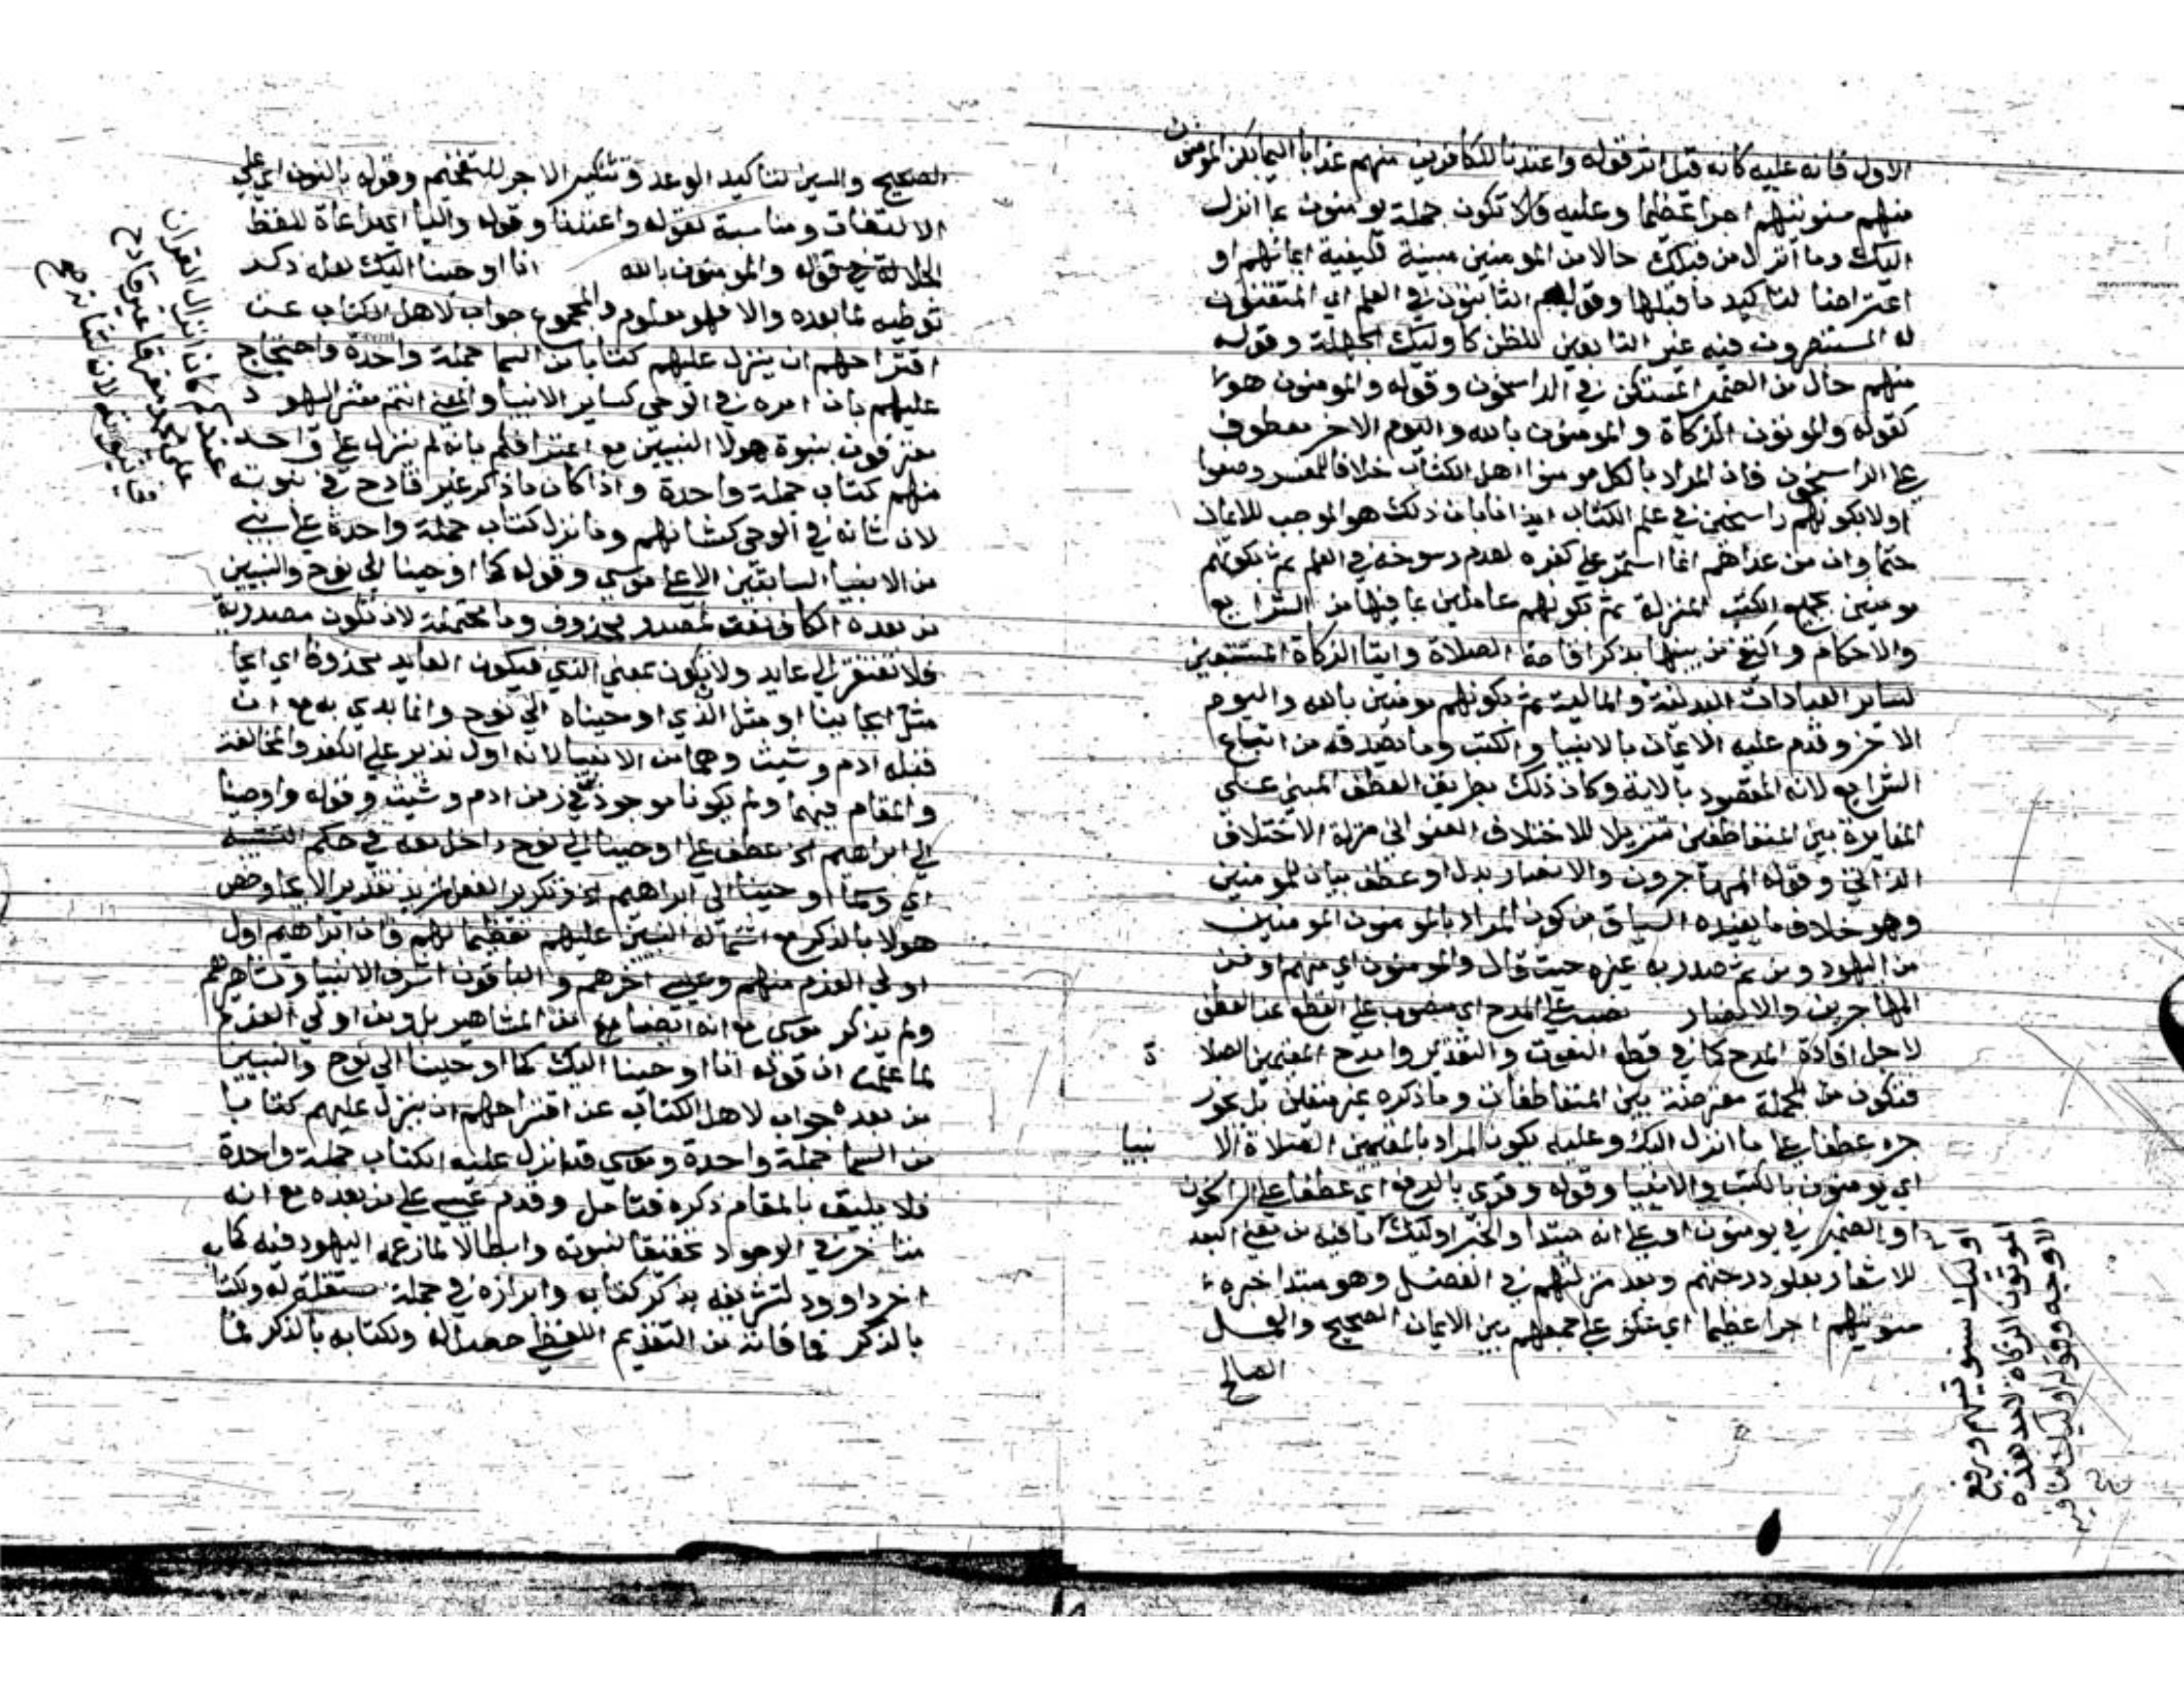 الاول فانه عليه كانه قيل اثر قوله واعتدنا للكافرين منهم عذابا اليما لكن المومنون
منهم سنوتيهم اجرا عظيما وعليه فلا تكون جملة يومنون بما انزل
اليك وما انزل من قبلك حالا من المومنين مبينة لكيفية ايمانهم او
اعتراضا لتاكيد ما قبلها وقوله الثابتون في العلم اي المتقنون
له المستبصرون فيه غير التابعين للظن كاوليك الجهلة وقوله
منهم حال من الضمير المستكن في الراسخون وقوله والمومنون هولا
كقوله والموتون الزكاة والمومنون بالله واليوم الاخر معطوف
على الراسخون فان المراد بالكل مومنوا اهل الكتاب خلافا للمفسر وصفوا
اولا بكونهم راسخين في علم الكتاب ايذانا بان ذلك هو الموجب للايمان
حتما وان من عداهم انما استمر على كفره لعدم رسوخه في العلم ثم بكونهم
مومنين بجميع الكتب المنزلة ثم بكونهم عاملين بما فيها من الشرايع
والاحكام واكتفي من بينها بذكر اقامة الصلاة وايتا الزكاة المستتبعين
لساير العبادات البدنية والمالية ثم بكونهم مومنين بالله واليوم
الاخر وقدم عليه الايمان بالانبيا والكتب وما يصدقه من اتباع
الشرايع لانه المقصود بالاية وكان ذلك بطريق العطف المبني على
المغايرة بين المتعاطفين تنزيلا للاختلاف العنواني منزلة الاختلاف
الذاتي وقوله المهاجرون والانصار بدل او عطف بيان للمومنين
وهو خلاف ما يفيده السياق من كون المراد بالمومنون المومنين
من اليهود ومن ثم صدر به غيره حيث قال والمومنون اي منهم او من
المهاجرين والانصار نصب على المدح اي منصوب على القطع عن العطف
لاجل افادة المدح كما في قطع النعوت والتقدير وامدح المقيمين الصلاة
فتكون من الجملة معترضة بين المتعاطفات وما ذكره غير متعين بل يجوز
جره عطفا على ما انزل اليك وعليه يكون المراد بالمقيمين الصلاة الانبيا
اي يومنون بالكتب والانبيا وقوله وقري بالرفع اي عطفا على الراسخون
او الضمير في يومنون او على انه مبتدا والخبر اوليك وما فيه من معنى البعد
للاشعار بعلو درجتهم وبعد منزلتهم في الفضل وهو مبتدا خبره
سنوتيهم اجرا عظيما اي على جمعهم بين الايمان الصحيح والعمل
الصالح
اوليك سنوتيهم ورفع
الموتون الزكاة لاحد هذه
الاوجه وقوله اوليك
الصحيح والسين لتاكيد الوعد وتنكير الاجر للتفخيم وقوله بالنون اي على
الالتفات ومناسبة لقوله واعتدنا وقوله واليا اي مراعاة للفظ
الجلالة في قوله والمومنون بالله انا اوحينا اليك لعله ذكر
توطيه لما بعده والا فهو معلوم والمجموع جواب لاهل الكتاب عن
اقتراحهم ان ينزل عليهم كتابا من السما جملة واحدة واحتجاج
عليهم بان امره في الوحي كساير الانبيا والمعنى انتم معشر اليهود
معترفون بنبوة هولا النبيين مع اعترافكم بانه لم ينزل على واحد
منهم كتاب جملة واحدة واذا كان ما ذكر غير قادح في نبوته
لان شانه في الوحي كشانهم وما نزل كتاب جملة واحدة على نبي
من الانبيا السابقين الا على موسى وقوله كما اوحينا الى نوح والنبيين
من بعده الكاف نعت لمصدر محذوف وما محتملة لان تكون مصدرية
فلا تفتقر الى عايد ولان تكون بمعنى الذي فيكون العايد محذوفا اي ايحا
مثل ايحاينا او مثل الذي اوحيناه الى نوح وانما بدي به مع ان
قبله ادم وشيث وهما من الانبيا لانه اول نذير على الكفر والمخالفة
والمقام فيهما ولم يكونا موجودين في زمن ادم وشيث وقوله واوحينا
الى ابراهيم الخ عطف على اوحينا الى نوح داخل معه في حكم التشبيه
اي وكما اوحينا الى ابراهيم الخ وتكرير الفعل لمزيد تقرير الايحا وخص
هولا بالذكر مع اشتمال النبيين عليهم تعظيما لهم فان ابراهيم اول
اولي العزم منهم وعيسى اخرهم والباقون اشرف الانبيا ومشاهيرهم
ولم يذكر موسى مع انه ايضا من المشاهير بل ومن اولي العزم
لما علمت ان قوله انا اوحينا اليك كما اوحينا الى نوح والنبيين
من بعده جواب لاهل الكتاب عن اقتراحهم ان ينزل عليهم كتابا
من السما جملة واحدة وموسى قد انزل عليه الكتاب جملة واحدة
فلا يليق بالمقام ذكره فتامل وقدم عيسى على من بعده مع انه
متاخر في الوجود تحقيقا لنبوته وابطالا لما زعمه اليهود فيه كما
اخر داوود لتشريفه بذكر كتابه وابرازه في جملة مستقلة له ولكتابه
بالذكر فما فاته من التقديم اللفظي حصل له ولكتابه بالذكر لما
عندكم كان انزال القران
على محمد مفرقا غير قادح